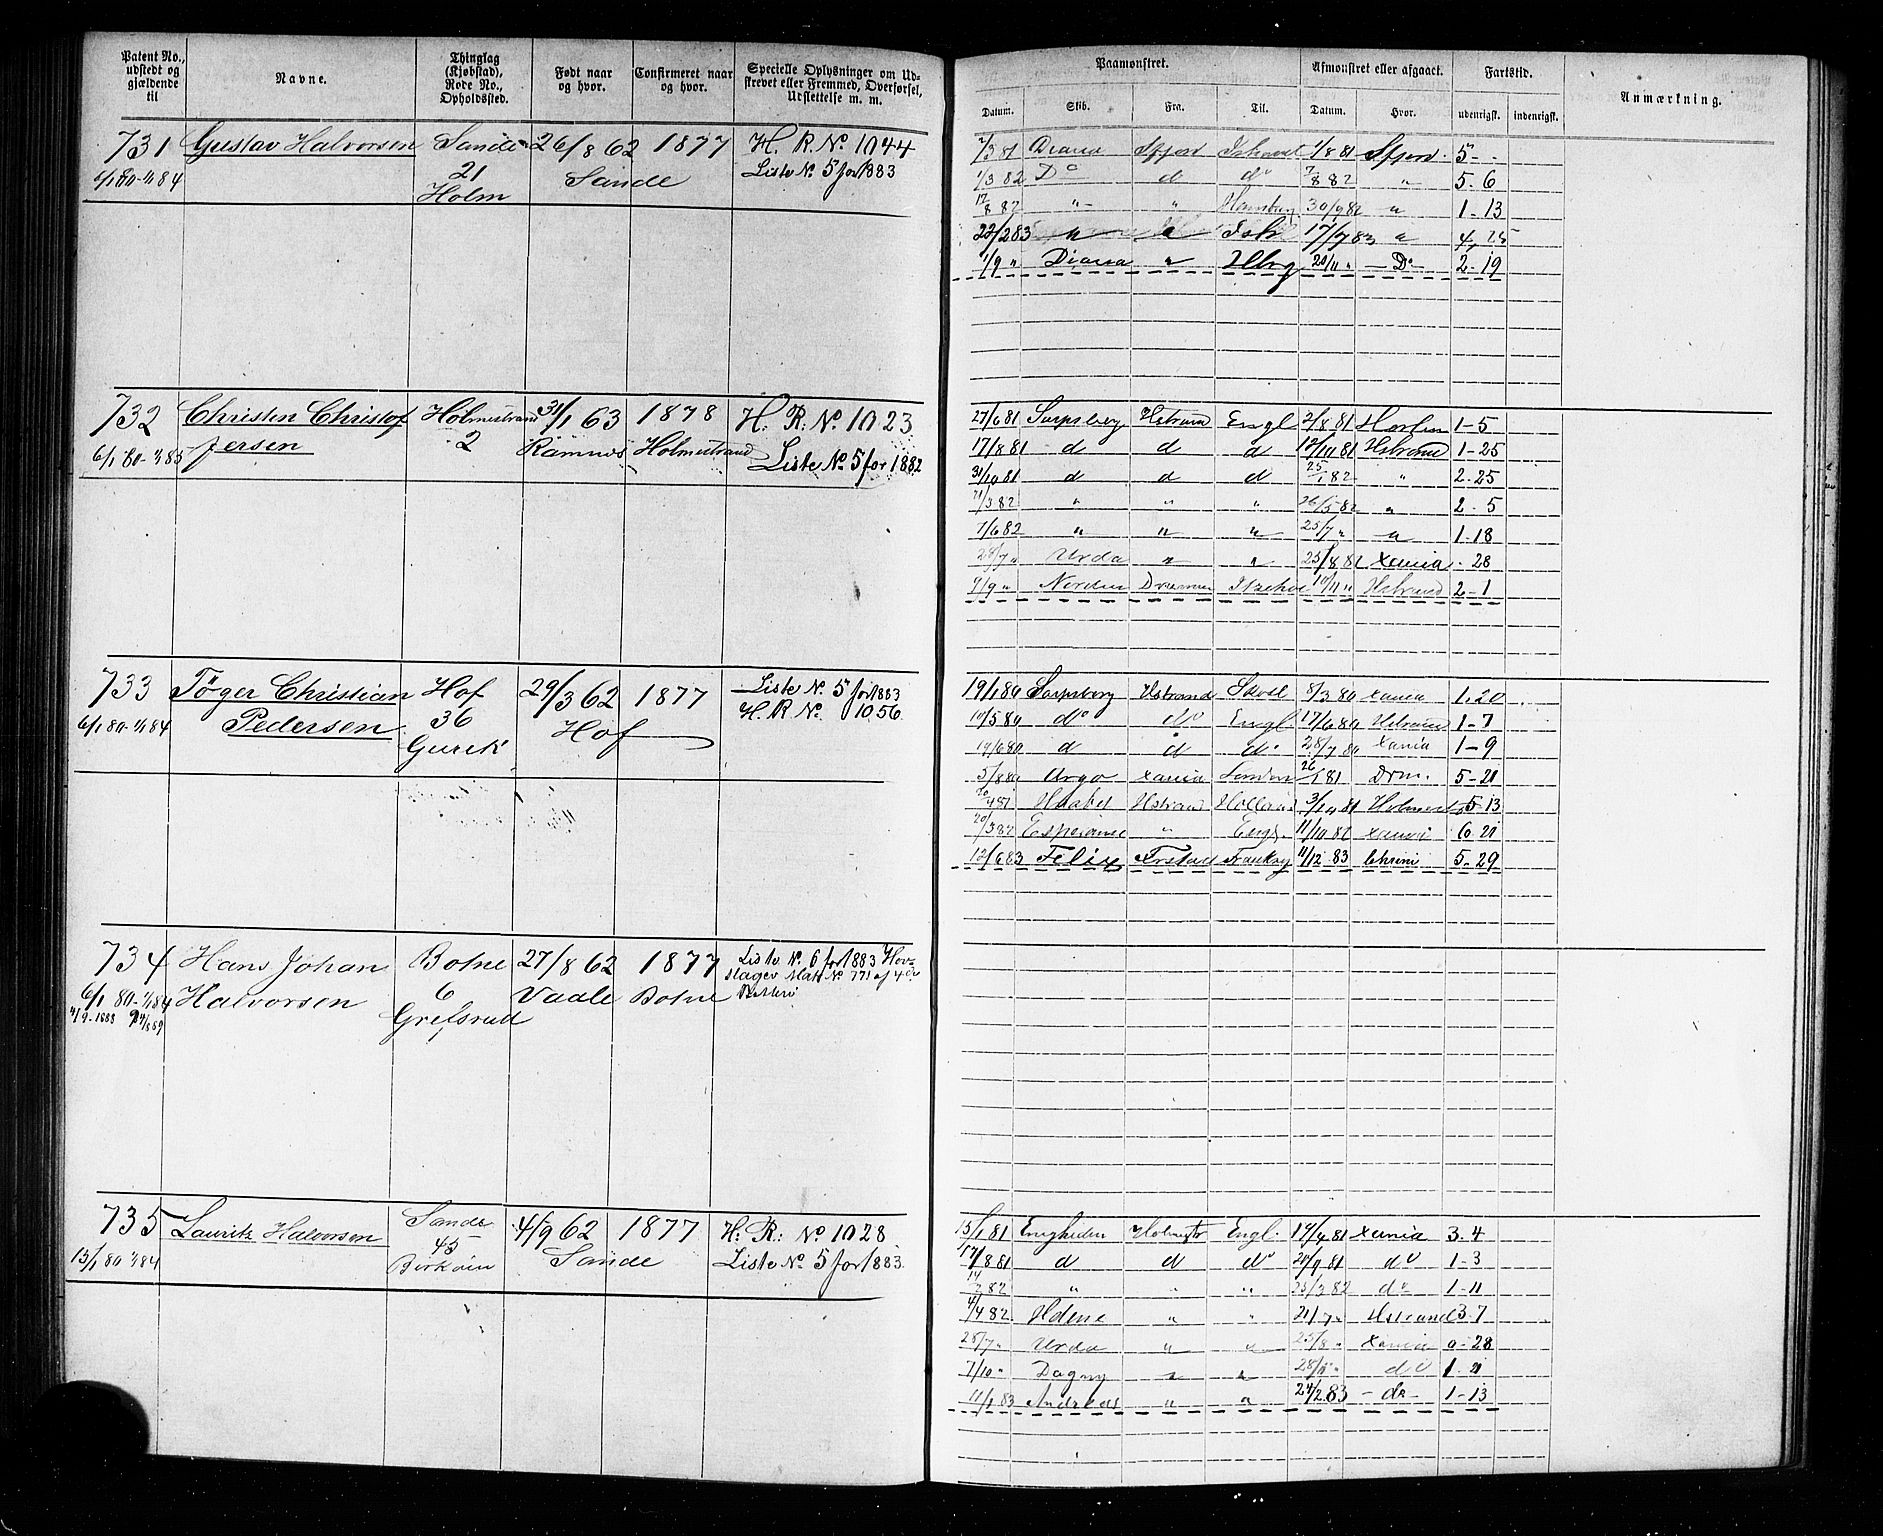 Patent No., udstedt og gjældende til
Navne.
Thinglag (Kjøbstad), Rode No., Opholdssted.
Født naar og hvor.
Confirmeret naar og hvor.
Specielle Oplysninger om Udskrevet eller Fremmed, Overførsel, Udslettelse m. m.
Paamønstret.
Datum.
Skib.
Fra.
Til.
Afmønstret eller afgaaet.
Datum.
Hvor.
Fartstid.
udenrigsk.
indenrigsk.
Anmærkning.
731 Gustav Halvorsen Sande 26/8 62 1877 H. R. No 1044
6/1 80-1/1 84 21 Sande Liste No 5 for 1883
Holm
Diana Sfjord 1/8 81 Sfjord 5 -
1/3 82 Do d do 7/8 82 " 5. 6
12/8 82 " " 30/9 82 " 1 - 13
22/2 83 17/7 83 "
1/9 " Diana " Hbrg 20/11 " Do 2 - 19
732 Christen Christof Holmestrand 31/1 63 1878 H. R. No 1023
6/1 80-1/1 85 fersen 2 Ramnes Holmestrand Liste No 5 for 1882
27/6 81 Sarpsborg Hstrand Engl 2/8 81 1-5
17/8 81 d d d 12/10 81 Hstrand 1-25
31/10 81 d d d 25/1 82 " 2-25
21/3 82 " " " 26/5 82 " 2 - 5
7/6 82 " " " 25/7 " " 1-18
28/7 " Urda " " 25/8 82 Xania - 28
7/9 " Norden Drammen Itzehoe 10/11 " Hstrand 2-1
733 Töger Christian Hof 29/3 62 1877 Liste No 5 for 1883
6/1 80-1/1 84 Pedersen 36 Hof H. R No. 1056
19/1 80 Sarpsborg Hstrand 8/3 80 Xania 1.20
10/5 80 do do Engl. 17/6 80 Hstrand 1-7
19/6 80 d d do 28/7 80 Xania 1-9
5/8 80 Argo Xania London 26/1 81 Drm. 5-21
Haabet Hstrand Holland 3/10 81 5-13
20/3 82 Esperance " Engl. 11/10 82 Xania 6. 21
12/6 83 Felix Frstad Frankrg 11/12 83 Chrini 5-29
734 Hans Johan Botne 27/8 62 1877 Liste No. 6 for 1883 Hov-
6/1 80-1/1 84 Halvorsen 6 Vaale Botne slager Matr No 771 af 4de
Grefsrud Batteri
735 Lauritz Halvorsen Sande 4/9 62 1877 H. R: No 1028
13/1 80 1/1 84 45 Sande Liste No 5 for 1883.
15/1 81 Enigheden Holmestr Engl. 19/4 81 Xania 3. 4
17/8 81 d d do 20/9 81 do 1-3
" " " 25/3 82 do 1-11
4/4 82 " " 21/7 " Hstrand 3.7
28/7 " Urda " " 25/8 " Xania 0-28
7/10 " Dagny " " 28/11 " do 1-21
11/1 83 Andreas " " 24/2 83 do 1-13